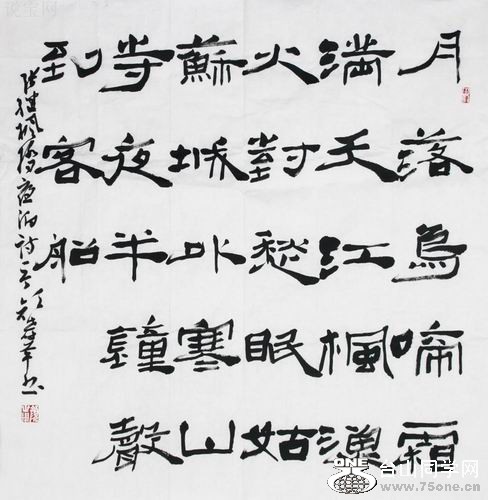 月落烏啼霜
滿天江楓漁
火對愁眠姑
蘇城外寒山
寺夜半鐘聲
到客船
張継楓橋夜泊詩
ONE
台山同学网
www.75one.cn